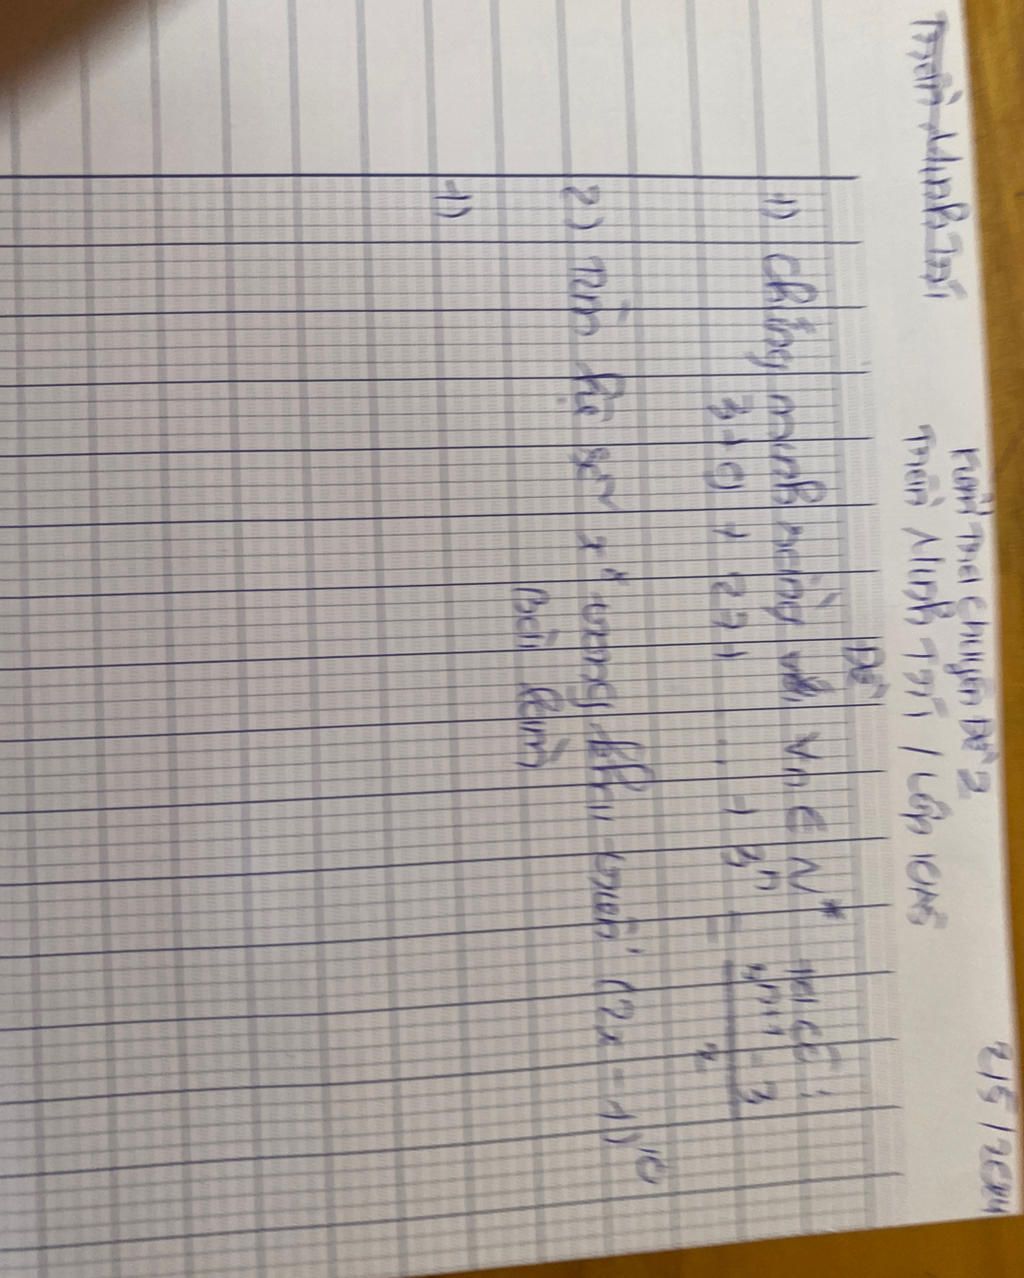 Kiểm Tra Chuyên Đề 2
2/5/2024
Trần Minh Trí
Trần Minh Trí / Lớp 10A8
Đề
1) Chứng minh rằng với ∀n ∈ N* ta có:
3 + 9 + 27 + ... + 3ⁿ = (3ⁿ⁺¹ - 3) / 2
2) Tìm hệ số x⁴ trong khai triển (2x - 1)¹⁰
Bài làm
1)